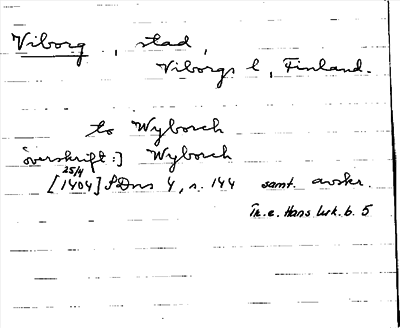 Viborg, stad,
Viborgs l, Finland.
to Wyborch
överskrift:] Wyborch
25/4
[1404] SDns 4, s. 144 samt. avskr.
Tr. e. Hans. Urk. b. 5